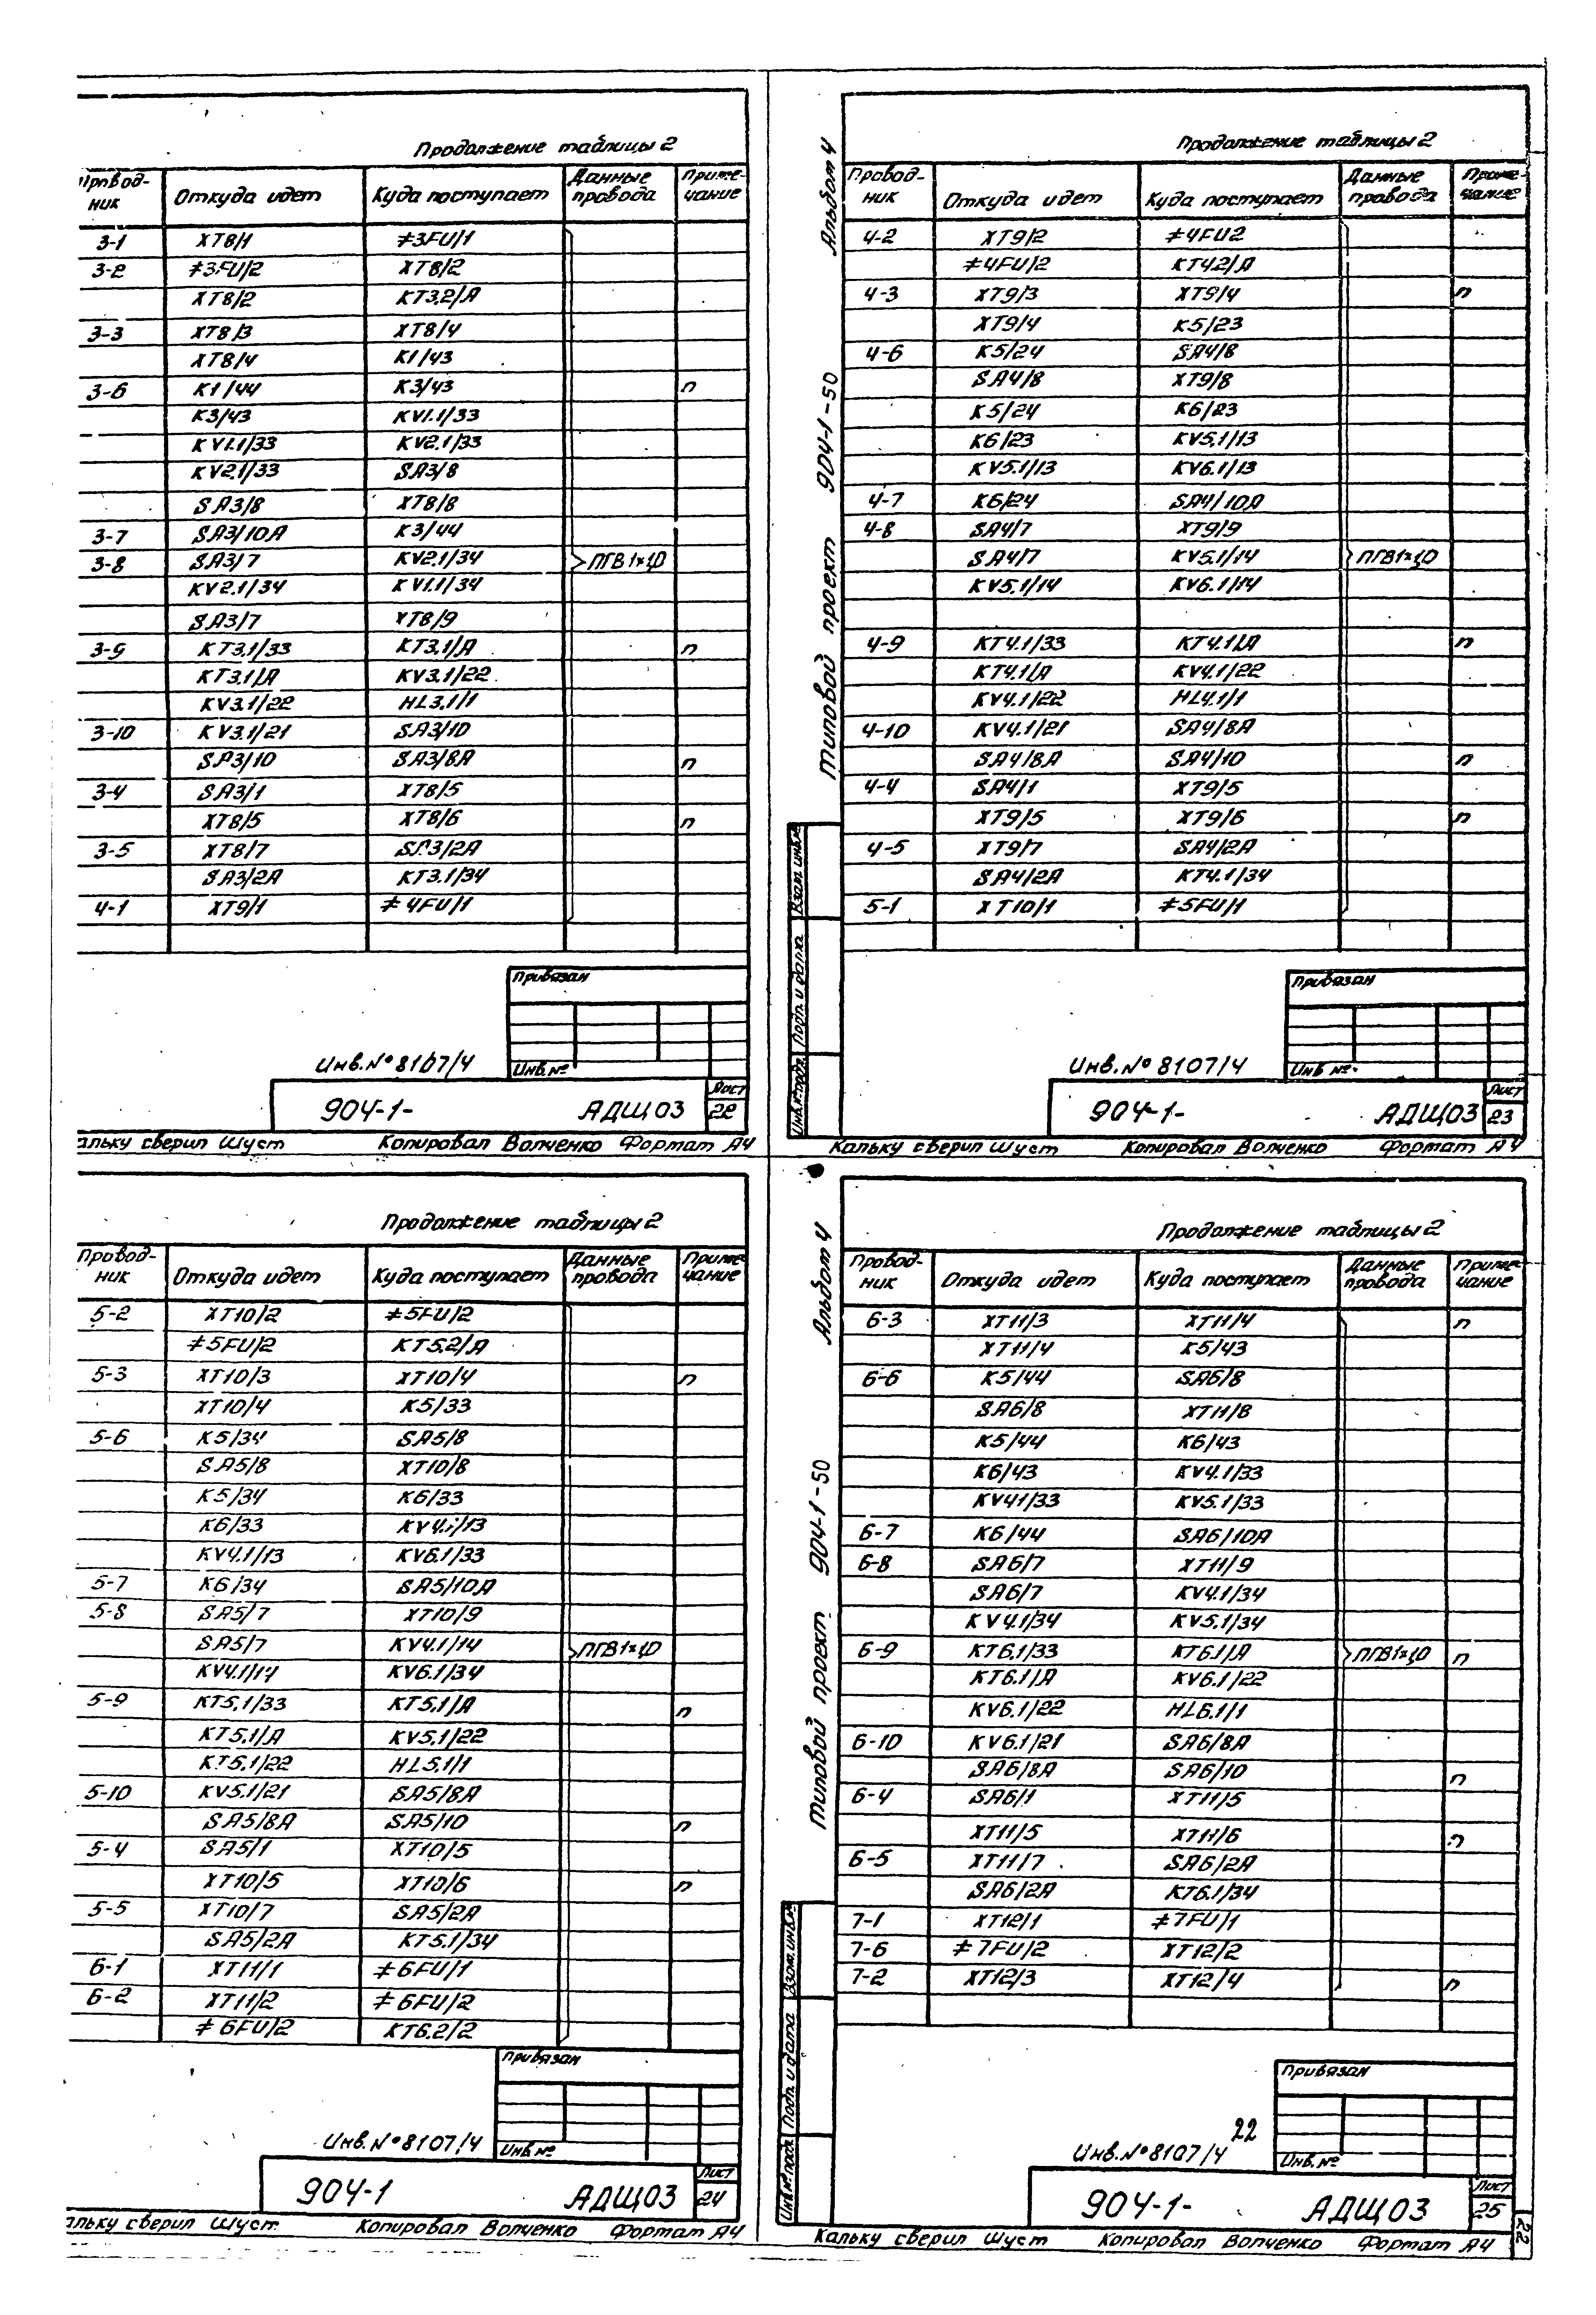 Продолжение таблицы 2
Провод-ник Откуда идет Куда поступает Данные провода Приме-чание
3-1 XT8/1 ≠3FU/1
3-2 ≠3FU/2 XT8/2
XT8/2 KT3.2/A
3-3 XT8/3 XT8/4
XT8/4 K1/43
3-6 K1/44 K3/43 п
K3/43 KV1.1/33
KV1.1/33 KV2.1/33
KV2.1/33 SA3/8
SA3/8 XT8/8
3-7 SA3/10A K3/44
3-8 SA3/7 KV2.1/34 ПГВ1×1,0
KV2.1/34 KV1.1/34
SA3/7 XT8/9
3-9 KT3.1/33 KT3.1/A п
KT3.1/A KV3.1/22
KV3.1/22 HL3.1/1
3-10 KV3.1/21 SA3/10
SA3/10 SA3/8A п
3-4 SA3/1 XT8/5
XT8/5 XT8/6 п
3-5 XT8/7 SA3/2A
SA3/2A KT3.1/34
4-1 XT9/1 ≠4FU/1
Привязан
Инв.№8107/4 Инв.№
904-1- АДЩ03 Лист 22
Кальку сверил Шуст Копировал Волченко Формат А4
Альбом 4
Типовой проект 904-1-50
Продолжение таблицы 2
Провод-ник Откуда идет Куда поступает Данные провода Приме-чание
4-2 XT9/2 ≠4FU2
≠4FU/2 KT4.2/A
4-3 XT9/3 XT9/4 п
XT9/4 K5/23
4-6 K5/24 SA4/8
SA4/8 XT9/8
K5/24 K6/23
K6/23 KV5.1/13
KV5.1/13 KV6.1/13
4-7 K6/24 SA4/10A
4-8 SA4/7 XT9/9
SA4/7 KV5.1/14 ПГВ1×1,0
KV5.1/14 KV6.1/14
4-9 KT4.1/33 KT4.1/A п
KT4.1/A KV4.1/22
KV4.1/22 HL4.1/1
4-10 KV4.1/21 SA4/8A
SA4/8A SA4/10 п
4-4 SA4/1 XT9/5
XT9/5 XT9/6 п
4-5 XT9/7 SA4/2A
SA4/2A KT4.1/34
5-1 XT10/1 ≠5FU/1
Взам. инв.№
Подп. и дата
Инв.№ подл.
Привязан
Инв.№8107/4 Инв №
904-1- АДЩ03 Лист 23
Кальку сверил Шуст Копировал Волченко Формат А4
Продолжение таблицы 2
Провод-ник Откуда идет Куда поступает Данные провода Приме-чание
5-2 XT10/2 ≠5FU/2
≠5FU/2 KT5.2/A
5-3 XT10/3 XT10/4 п
XT10/4 K5/33
5-6 K5/34 SA5/8
SA5/8 XT10/8
K5/34 K6/33
K6/33 KV4.1/13
KV4.1/13 KV6.1/33
5-7 K6/34 SA5/10A
5-8 SA5/7 XT10/9
SA5/7 KV4.1/14 ПГВ1×1,0
KV4.1/14 KV6.1/34
5-9 KT5.1/33 KT5.1/A п
KT5.1/A KV5.1/22
KT5.1/22 HL5.1/1
5-10 KV5.1/21 SA5/8A
SA5/8A SA5/10 п
5-4 SA5/1 XT10/5
XT10/5 XT10/6 п
5-5 XT10/7 SA5/2A
SA5/2A KT5.1/34
6-1 XT11/1 ≠6FU/1
6-2 XT11/2 ≠6FU/2
≠6FU/2 KT6.2/2
Привязан
Инв.№8107/4 Инв №
904-1 АДЩ03 Лист 24
Кальку сверил Шуст Копировал Волченко Формат А4
Альбом 4
Типовой проект 904-1-50
Продолжение таблицы 2
Провод-ник Откуда идет Куда поступает Данные провода Приме-чание
6-3 XT11/3 XT11/4 п
XT11/4 K5/43
6-6 K5/44 SA6/8
SA6/8 XT11/8
K5/44 K6/43
K6/43 KV4.1/33
KV41/33 KV5.1/33
6-7 K6/44 SA6/10A
6-8 SA6/7 XT11/9
SA6/7 KV4.1/34
KV4.1/34 KV5.1/34
6-9 KT6.1/33 KT6.1/A ПГВ1×1,0 п
KT6.1/A KV6.1/22
KV6.1/22 HL6.1/1
6-10 KV6.1/21 SA6/8A
SA6/8A SA6/10 п
6-4 SA6/1 XT11/5
XT11/5 XT11/6 п
6-5 XT11/7 SA6/2A
SA6/2A KT6.1/34
7-1 XT12/1 ≠7FU/1
7-6 ≠7FU/2 XT12/2
7-2 XT12/3 XT12/4 п
Взам. инв.№
Подп. и дата
Инв.№ подл.
Привязан
22
Инв.№8107/4 Инв.№
904-1- АДЩ03 Лист 25
Кальку сверил Шуст Копировал Волченко Формат А4
22